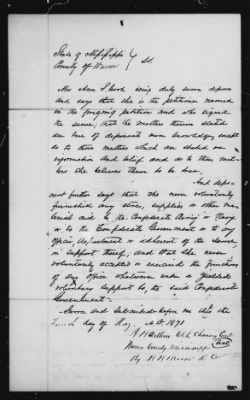 State of Mississippi
County of Warren } Ss.
Mrs Ann S. Cook being duly sworn deposes
and says that she is the petitioner named
in the foregoing petition and who signed
the same; that the matters therein stated
are true of deponents own knowledge, except
as to those matters which are stated on
information and belief and as to those mat-
ters she believes them to be true.
And depo-
nent further says that she never voluntarily
furnished any stores, supplies or other ma-
terial aid to the Confederate Army or Navy
or to the Confederate Government or to any
Officer, department or adherent of the same
in support thereof, and that she never
voluntarily accepted or exercised the functions
of any office whatsoever under or yielded
voluntary support to, the said Confederate
Government.
Sworn and subscribed before me this the
day of May A.D. 1871
Clk Chancery Court
Warren County Mississippi
By D.C.